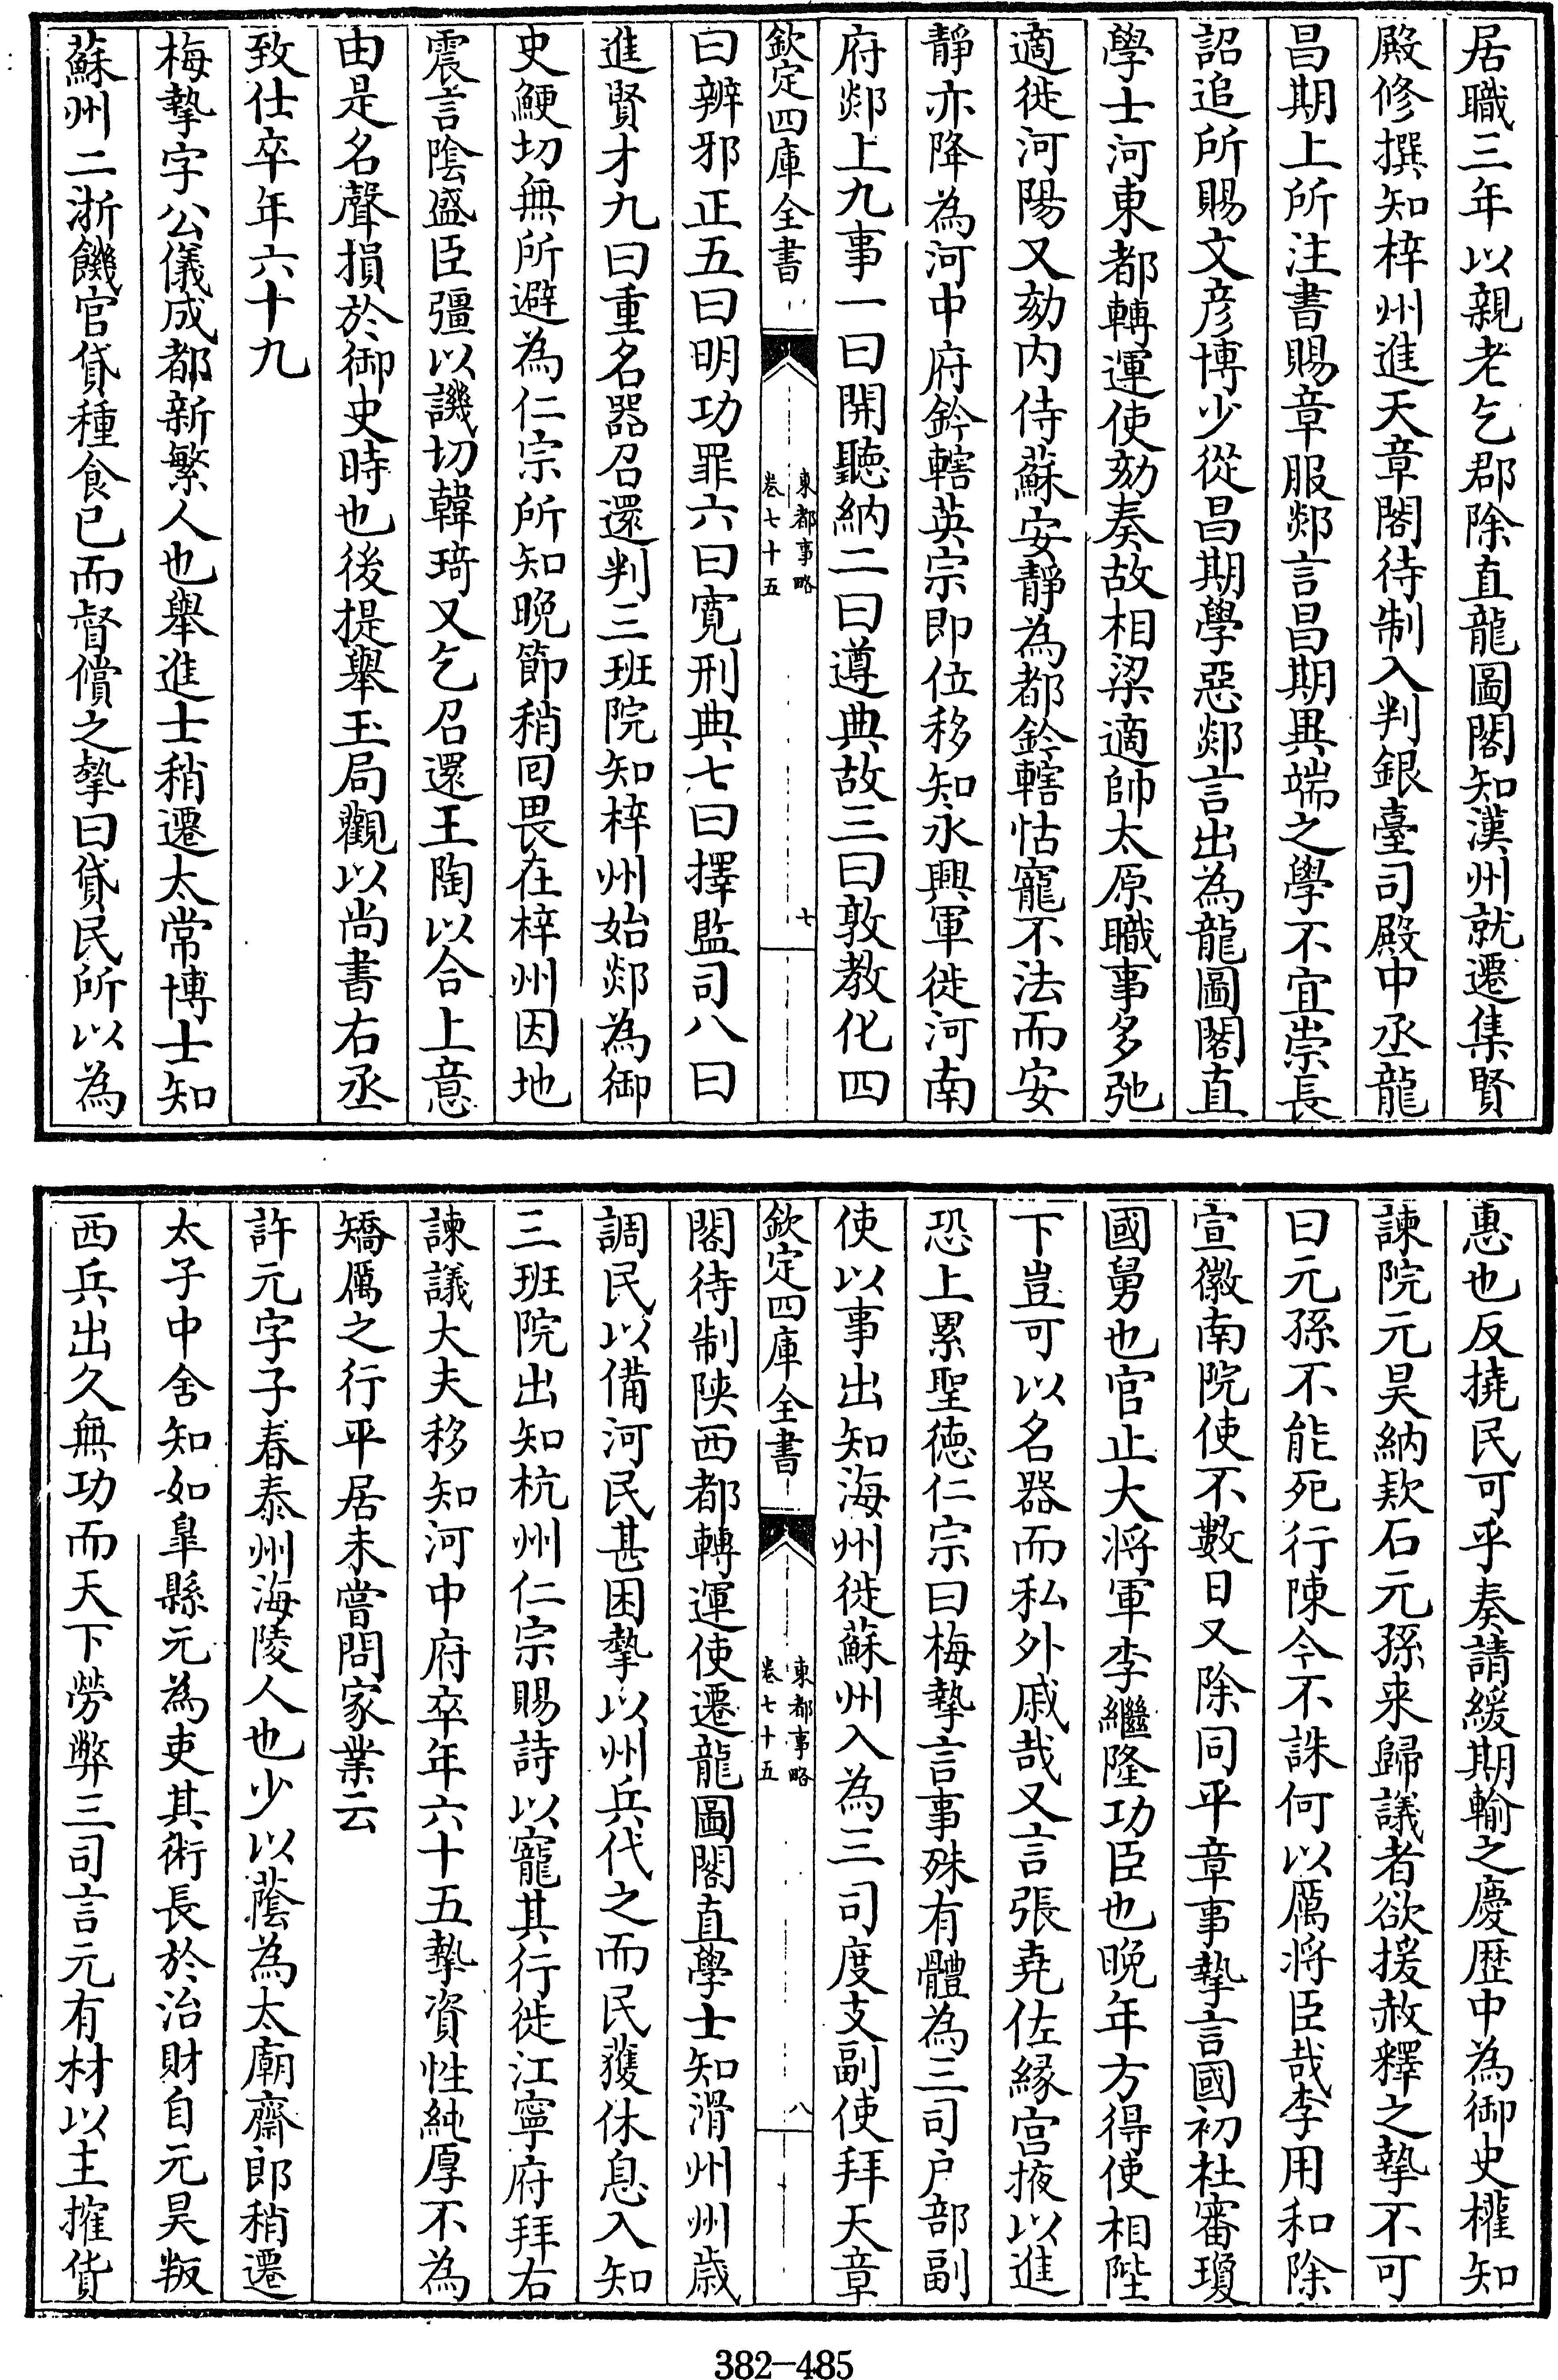 居職三年以親老乞郡除直龍圖閣知漢州就遷集賢
殿修撰知梓州進天章閣待制入判銀臺司殿中丞龍
昌期上所注書賜章服郯言昌期異端之學不宜崇長
詔追所賜文彦博少從昌期學惡郯言出為龍圖閣直
學士河東都轉運使劾奏故相梁適帥太原職事多弛
適徙河陽又劾内侍蘇安靜為都鈐轄怙寵不法而安
靜亦降為河中府鈐轄英宗即位移知永興軍徙河南
府郯上九事一曰開聽納二曰遵典故三曰敦教化四
欽定四庫全書
東都事略
卷七十五
七
曰辨邪正五曰明功罪六曰寬刑典七曰擇監司八曰
進賢才九曰重名器召還判三班院知梓州始郯為御
史鯁切無所避為仁宗所知晚節稍回畏在梓州因地
震言隂盛臣彊以譏切韓琦又乞召還王陶以合上意
由是名聲損於御史時也後提舉玉局觀以尚書右丞
致仕卒年六十九
梅摯字公儀成都新繁人也舉進士稍遷太常博士知
蘇州二浙饑官貸種食已而督償之摯曰貸民所以為
惠也反撓民可乎奏請緩期輸之慶歴中為御史權知
諫院元昊納欵石元孫来歸議者欲援赦釋之摯不可
曰元孫不能死行陳今不誅何以厲将臣哉李用和除
宣徽南院使不數日又除同平章事摯言國初杜審瓊
國舅也官止大将軍李繼隆功臣也晚年方得使相陛
下豈可以名器而私外戚哉又言張堯佐縁宫掖以進
恐上累聖德仁宗曰梅摯言事殊有體為三司户部副
使以事出知海州徙蘇州入為三司度支副使拜天章
欽定四庫全書
東都事略
卷七十五
八
閣待制陜西都轉運使遷龍圖閣直學士知滑州州歳
調民以備河民甚困摯以州兵代之而民獲休息入知
三班院出知杭州仁宗賜詩以寵其行徙江寧府拜右
諫議大夫移知河中府卒年六十五摯資性純厚不為
矯厲之行平居未嘗問家業云
許元字子春泰州海陵人也少以蔭為太廟齋郎稍遷
太子中舍知如臯縣元為吏其術長於治財自元昊叛
西兵出久無功而天下勞弊三司言元有材以主搉貨
382-485